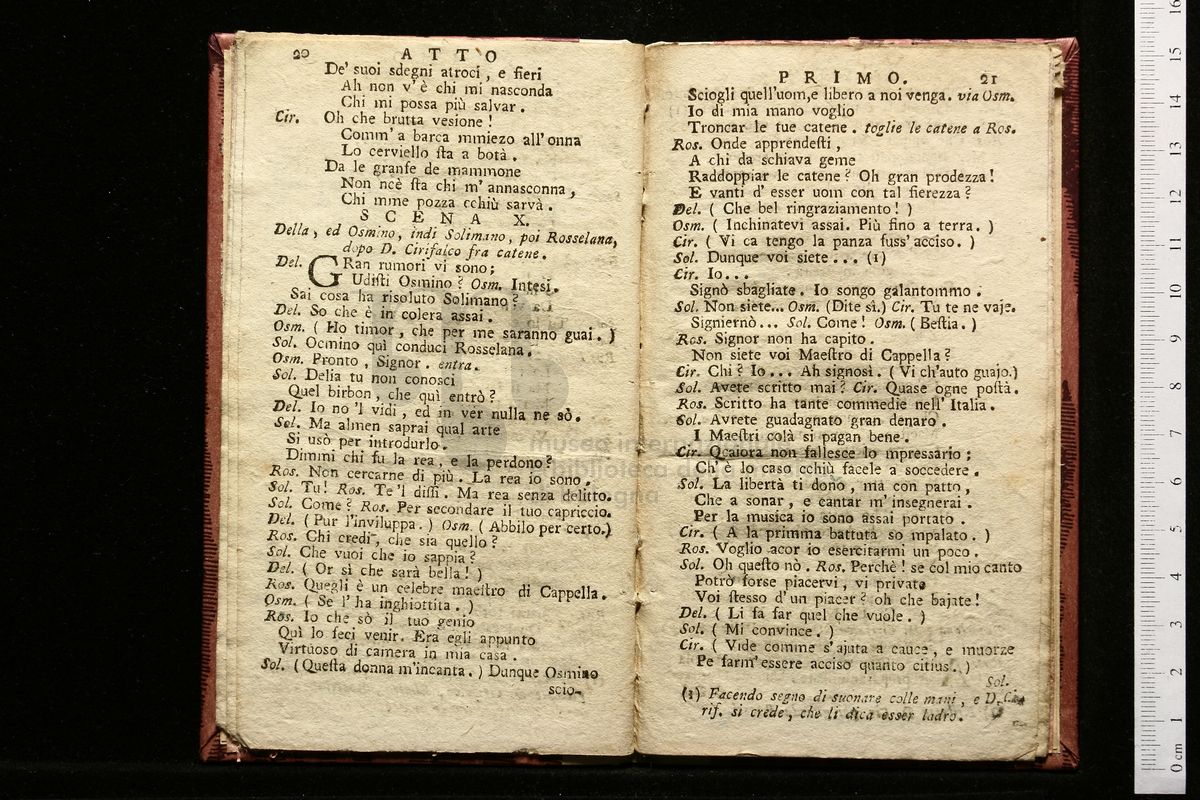 20 ATTO
De' suoi sdegni atroci, e fieri
Ah non v' è chi mi nasconda
Chi mi possa più salvar.
Cir. Oh che brutta vesione!
Comm' a barca mmiezo all' onna
Lo cerviello ſta a botà.
Da le granfe de mammone
Non ncè ſta chi m' annasconna,
Chi mme pozza cchiù sarvà.
SCENA X.
Delia, ed Osmino, indi Solimano, poi Rosselana,
dopo D. Cirifalco fra catene.
Del. GRan rumori vi sono;
Udiſti Osmino? Osm. Intesi.
Sai cosa ha risoluto Solimano?
Del. So che è in colera assai.
Osm. ( Ho timor, che per me saranno guai. )
Sol. Ocmino quì conduci Rosselana.
Osm. Pronto, Signor. entra.
Sol. Delia tu non conosci
Quel birbon, che quì entrò?
Del. Io no 'l vidi, ed in ver nulla ne sò.
Sol. Ma almen saprai qual arte
Si usò per introdurlo.
Dimmi chi fu la rea, e la perdono?
Ros. Non cercarne di più. La rea io sono.
Sol. Tu! Ros. Te 'l diſſi. Ma rea senza delitto.
Sol. Come? Ros. Per secondare il tuo capriccio.
Del. ( Pur l'inviluppa. ) Osm. ( Abbilo per certo.)
Ros. Chi credi, che sia quello?
Sol. Che vuoi che io sappia?
Del. ( Or sì che sarà bella! )
Ros. Quegli è un celebre maeſtro di Cappella.
Osm. ( Se l' ha inghiottita. )
Ros. Io che sò il tuo genio
Quì lo feci venir. Era egli appunto
Virtuoso di camera in mia casa.
Sol. (Queſta donna m'incanta.) Dunque Osmino
scio-
PRIMO. 21
Sciogli quell'uom,e libero a noi venga. via Osm.
Io di mia mano voglio
Troncar le tue catene. toglie le catene a Ros.
Ros. Onde apprendeſti,
A chi da schiava geme
Raddoppiar le catene? Oh gran prodezza!
E vanti d' esser uom con tal fierezza?
Del. ( Che bel ringraziamento! )
Osm. ( Inchinatevi assai. Più fino a terra. )
Cir. ( Vi ca tengo la panza fuss' acciso. )
Sol. Dunque voi siete... (1)
Cir. Io...
Signò sbagliate. Io songo galantommo.
Sol. Non siete... Osm. (Dite sì.) Cir. Tu te ne vaje.
Signiernò... Sol. Come! Osm. ( Beſtia. )
Ros. Signor non ha capito.
Non siete voi Maeſtro di Cappella?
Cir. Chi? Io... Ah signosì. ( Vi ch'auto guajo.)
Sol. Avete scritto mai? Cir. Quase ogne poſta.
Ros. Scritto ha tante commedie nell' Italia.
Sol. Avrete guadagnato gran denaro.
I Maeſtri colà si pagan bene.
Cir. Qcaiora non fallesce lo mpressario;
Ch' è lo caso cchiù facele a soccedere.
Sol. La libertà ti dono, ma con patto,
Che a sonar, e cantar m' insegnerai.
Per la musica io sono assai portato.
Cir. ( A la primma battuta so mpalato. )
Ros. Voglio acor io esercitarmi un poco.
Sol. Oh queſto nò. Ros. Perchè! se col mio canto
Potrò forse piacervi, vi private
Voi ſtesso d' un piacer? oh che bajate!
Del. ( Li fa far quel che vuole. )
Sol. ( Mi convince. )
Cir. ( Vide comme s' ajuta a cauce, e muorze
Pe farm' essere acciso quanto citius. )
Sol.
(1) Facendo segno di suonare colle mani, e D. Ci-
rif. si crede, che li dica esser ladro.
0 cm 1 2 3 4 5 6 7 8 9 10 11 12 13 14 15 16